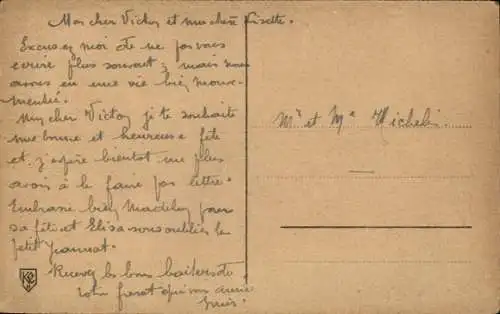 Mon cher Victor et ma chère Lisette.
Excusez moi de ne pas vous
écrire plus souvent, mais nous
avons eu une vie bien mouve-
mentée.
Mon cher Victor je te souhaite
une bonne et heureuse fête
et j'espère bientot ne plus
avoir à le faire par lettre.
Embrasse bien Madelon pour
sa fête et Elisa sans oublier le
petit
Recevez les bons baisers de
votre qui vous aime
Mr et Me Michelin.